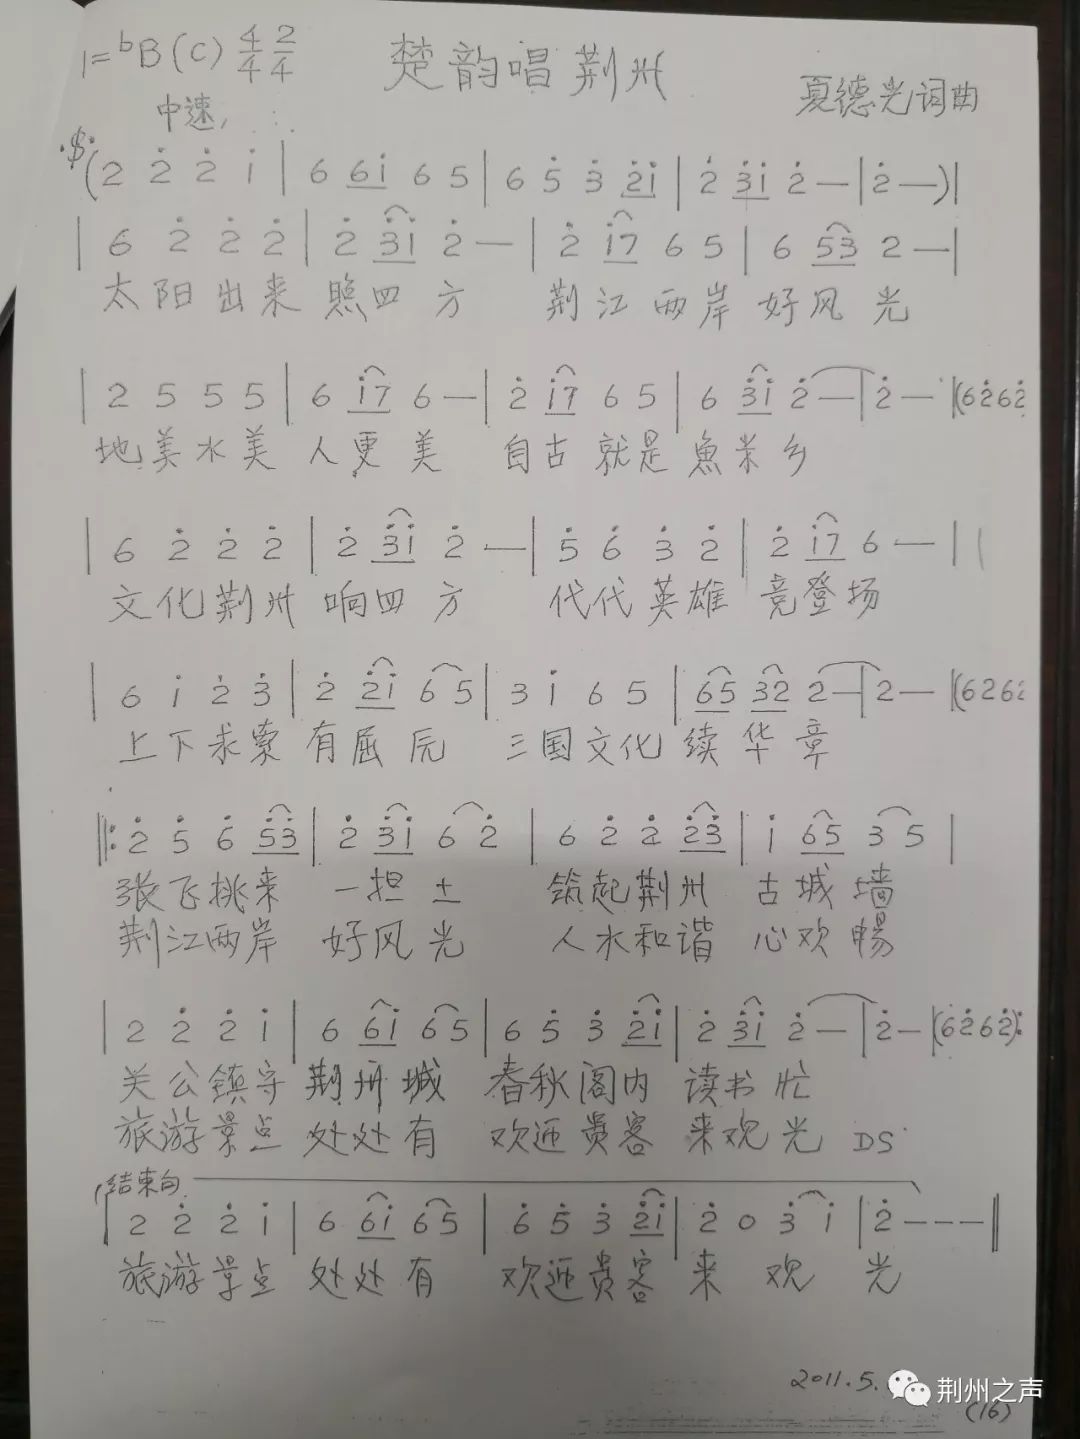 1=ᵇB(C) 4/4 2/4 楚韵唱荆州
夏德光词曲
中速
(2 2̇ 2̇ 1̇ | 6 6̲1̲̇ 6 5 | 6 5̇ 3̇ 2̲̇1̲̇ | 2̇ 3̲̇1̲̇ 2̇ — | 2̇ —) |
| 6 2̇ 2̇ 2̇ | 2̇ 3̲̇1̲̇ 2̇ — | 2̇ 1̲̇7̲ 6 5 | 6 5̲3̲ 2 — |
太阳出来 照四方 荆江两岸 好风光
| 2 5 5 5 | 6 1̲̇7̲ 6 — | 2̇ 1̲̇7̲ 6 5 | 6 3̲̇1̲̇ 2̇ — | 2̇ — |(6 2̇ 6 2̇
地美水美 人更美 自古就是鱼米乡
| 6 2̇ 2̇ 2̇ | 2̇ 3̲̇1̲̇ 2̇ — | 5̇ 6̇ 3̇ 2̇ | 2̇ 1̲̇7̲ 6 — |
文化荆州 响四方 代代英雄 竞登场
| 6 1̇ 2̇ 3̇ | 2̇ 2̲̇1̲̇ 6 5 | 3 1̇ 6 5 | 6̲5̲ 3̲2̲ 2 — | 2 — |(6 2 6 2
上下求索 有屈原 三国文化 续华章
‖: 2̇ 5̇ 6̇ 5̲̇3̲̇ | 2̇ 3̲̇1̲̇ 6 2̇ | 6 2̇ 2̇ 2̲̇3̲̇ | 1̇ 6̲5̲ 3 5 |
张飞挑来 一担土 筑起荆州 古城墙
荆江两岸 好风光 人水和谐 心欢畅
| 2 2̇ 2̇ 1̇ | 6 6̲1̲̇ 6 5 | 6 5̇ 3̇ 2̲̇1̲̇ | 2̇ 3̲̇1̲̇ 2̇ — | 2̇ — |(6 2̇ 6 2̇):
关公镇守 荆州城 春秋阁内 读书忙
旅游景点 处处有 欢迎贵客 来观光 DS
结束句
| 2 2̇ 2̇ 1̇ | 6 6̲1̲̇ 6 5 | 6̇ 5̇ 3̇ 2̲̇1̲̇ | 2̇ 0 3̇ 1̇ | 2̇ — — — ‖
旅游景点 处处有 欢迎贵客 来 观 光
2011.5.
荆州之声
(16)